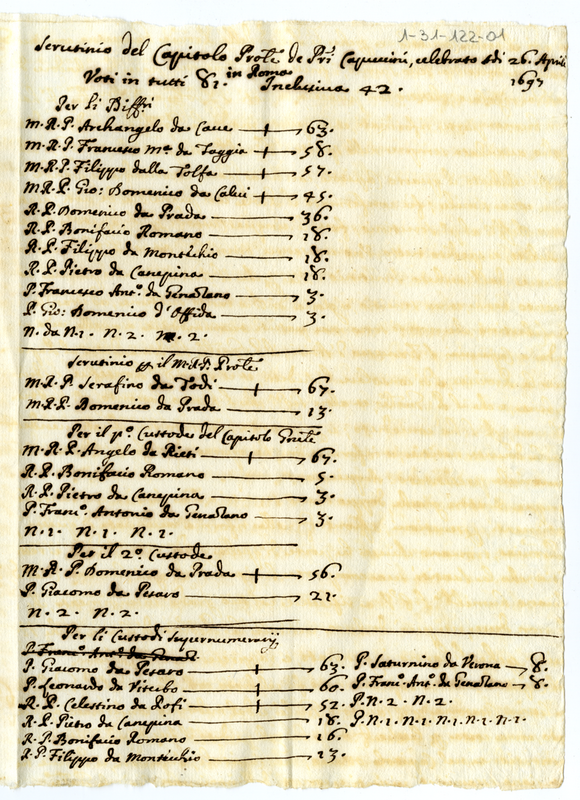 1-31-122-01
Scrutinio del Capitolo Prole de Pri Capuccini, celebrato adi 26. Aprile
in Roma 1697
Voti in tutti 81. Inclusiva 42.
Per li Diffri
M.R.P. Archangelo da Cave + 63.
M.R.P. Francesco Ma da Taggia + 58.
M.R.P. Filippo dalla Tolfa + 57.
M.R.P. Gio: Domenico da Calvi + 45.
R.P. Domenico da Prada 36.
R.P. Bonifacio Romano 18.
R.P. Filippo da Montichio 18.
R.P. Pietro da Canepina 18.
P. Francesco Anto da Genazano 3.
P. Gio: Domenico d'Offida 3.
N. da N.1. N.2. N.2.
Scrutinio p il M.R.P. Prole
M.R.P. Serafino da Todi + 67.
M.R.P. Domenico da Prada 13.
Per il po Custode del Capitolo Gnele
M.R.P. Angelo da Rieti + 67.
R.P. Bonifacio Romano 5.
R.P. Pietro da Canepina 3.
P. Franco Antonio da Genazano 3.
N.1. N.1. N.1.
Per il 2o Custode
M.R.P. Domenico da Prada + 56.
P. Giacomo da Pesaro 21.
N.2. N.2.
Per li Custodi supernumerarij
P. Franco Anto da
P. Giacomo da Pesaro + 63. P. Saturnino da Verona 8.
P. Leonardo da Viterbo + 60. P. Franco Anto da Genazano 8.
R.P. Celestino da Rofi + 52. P.N.2. N.2.
R.P. Pietro da Canepina 18. P.N.1. N.1. N.1. N.1. N.1.
R.P. Bonifacio Romano 16.
R.P. Filippo da Montichio 13.